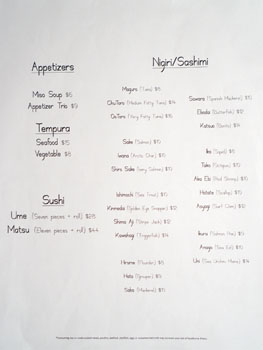 Appetizers
Miso Soup $6
Appetizer Trio $9
Tempura
Seafood $15
Vegetable $8
Sushi
Ume (Seven pieces + roll) $28
Matsu (Eleven pieces + roll) $44
Nigiri/Sashimi
Maguro (Tuna) $8
ChuToro (Medium Fatty Tuna) $14
OoToro (Very Fatty Tuna)
Sake (Salmon) $10
Iwana (Arctic Char) $10
Shiro Sake (Ivory Salmon) $10
Ishimochi (Sea Trout) $10
Kinmedai (Golden Eye Snapper) $12
Shima Aji (Stripe Jack) $12
Kawahagi (Triggerfish) $14
Hirame (Flounder)
Hata (Grouper) $9
Saba (Mackerel) $10
Sawara (Spanish Mackerel) $15
Ebodai (Butterfish) $12
Katsuo (Bonito) $14
Ika (Squid) $5
Tako (Octopus) $10
Ama Ebi (Red Shrimp) $10
Hotate (Scallop) $10
Aoyagi (Surf Clam) $10
Ikura (Salmon Roe) $9
Anago (Sea Eel) $10
Uni (Sea Urchin, Maine) $14